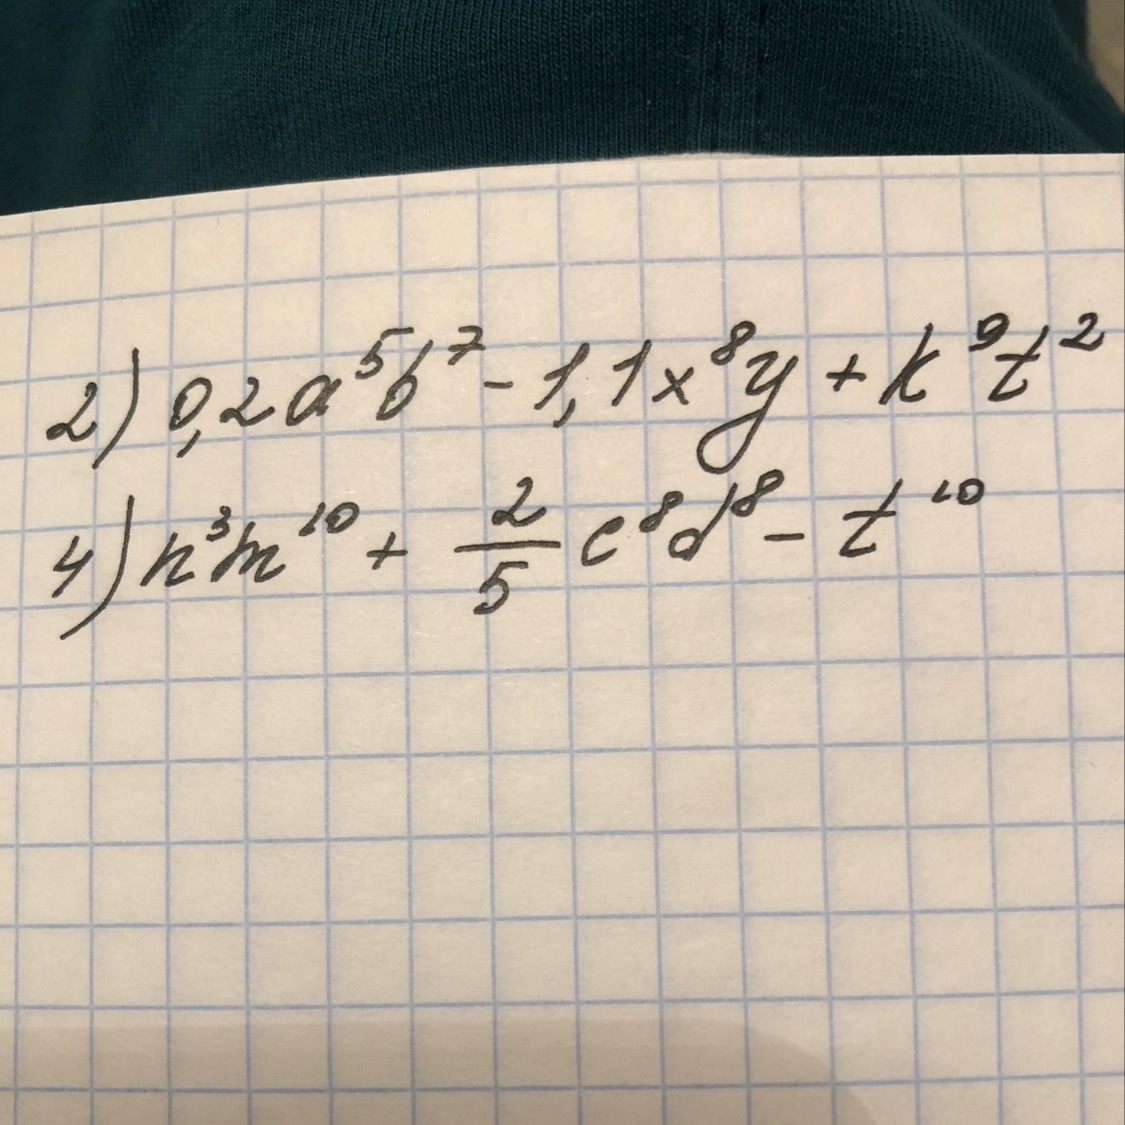 2) 0,2a⁵b⁷ - 1,1x⁸y + k⁹t²
4) n³m¹⁰ + 2/5 c⁸d⁸ - t¹⁰